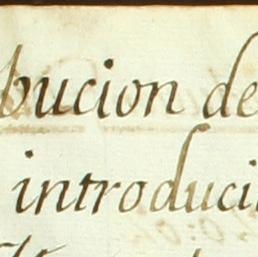 bucion de
introduci